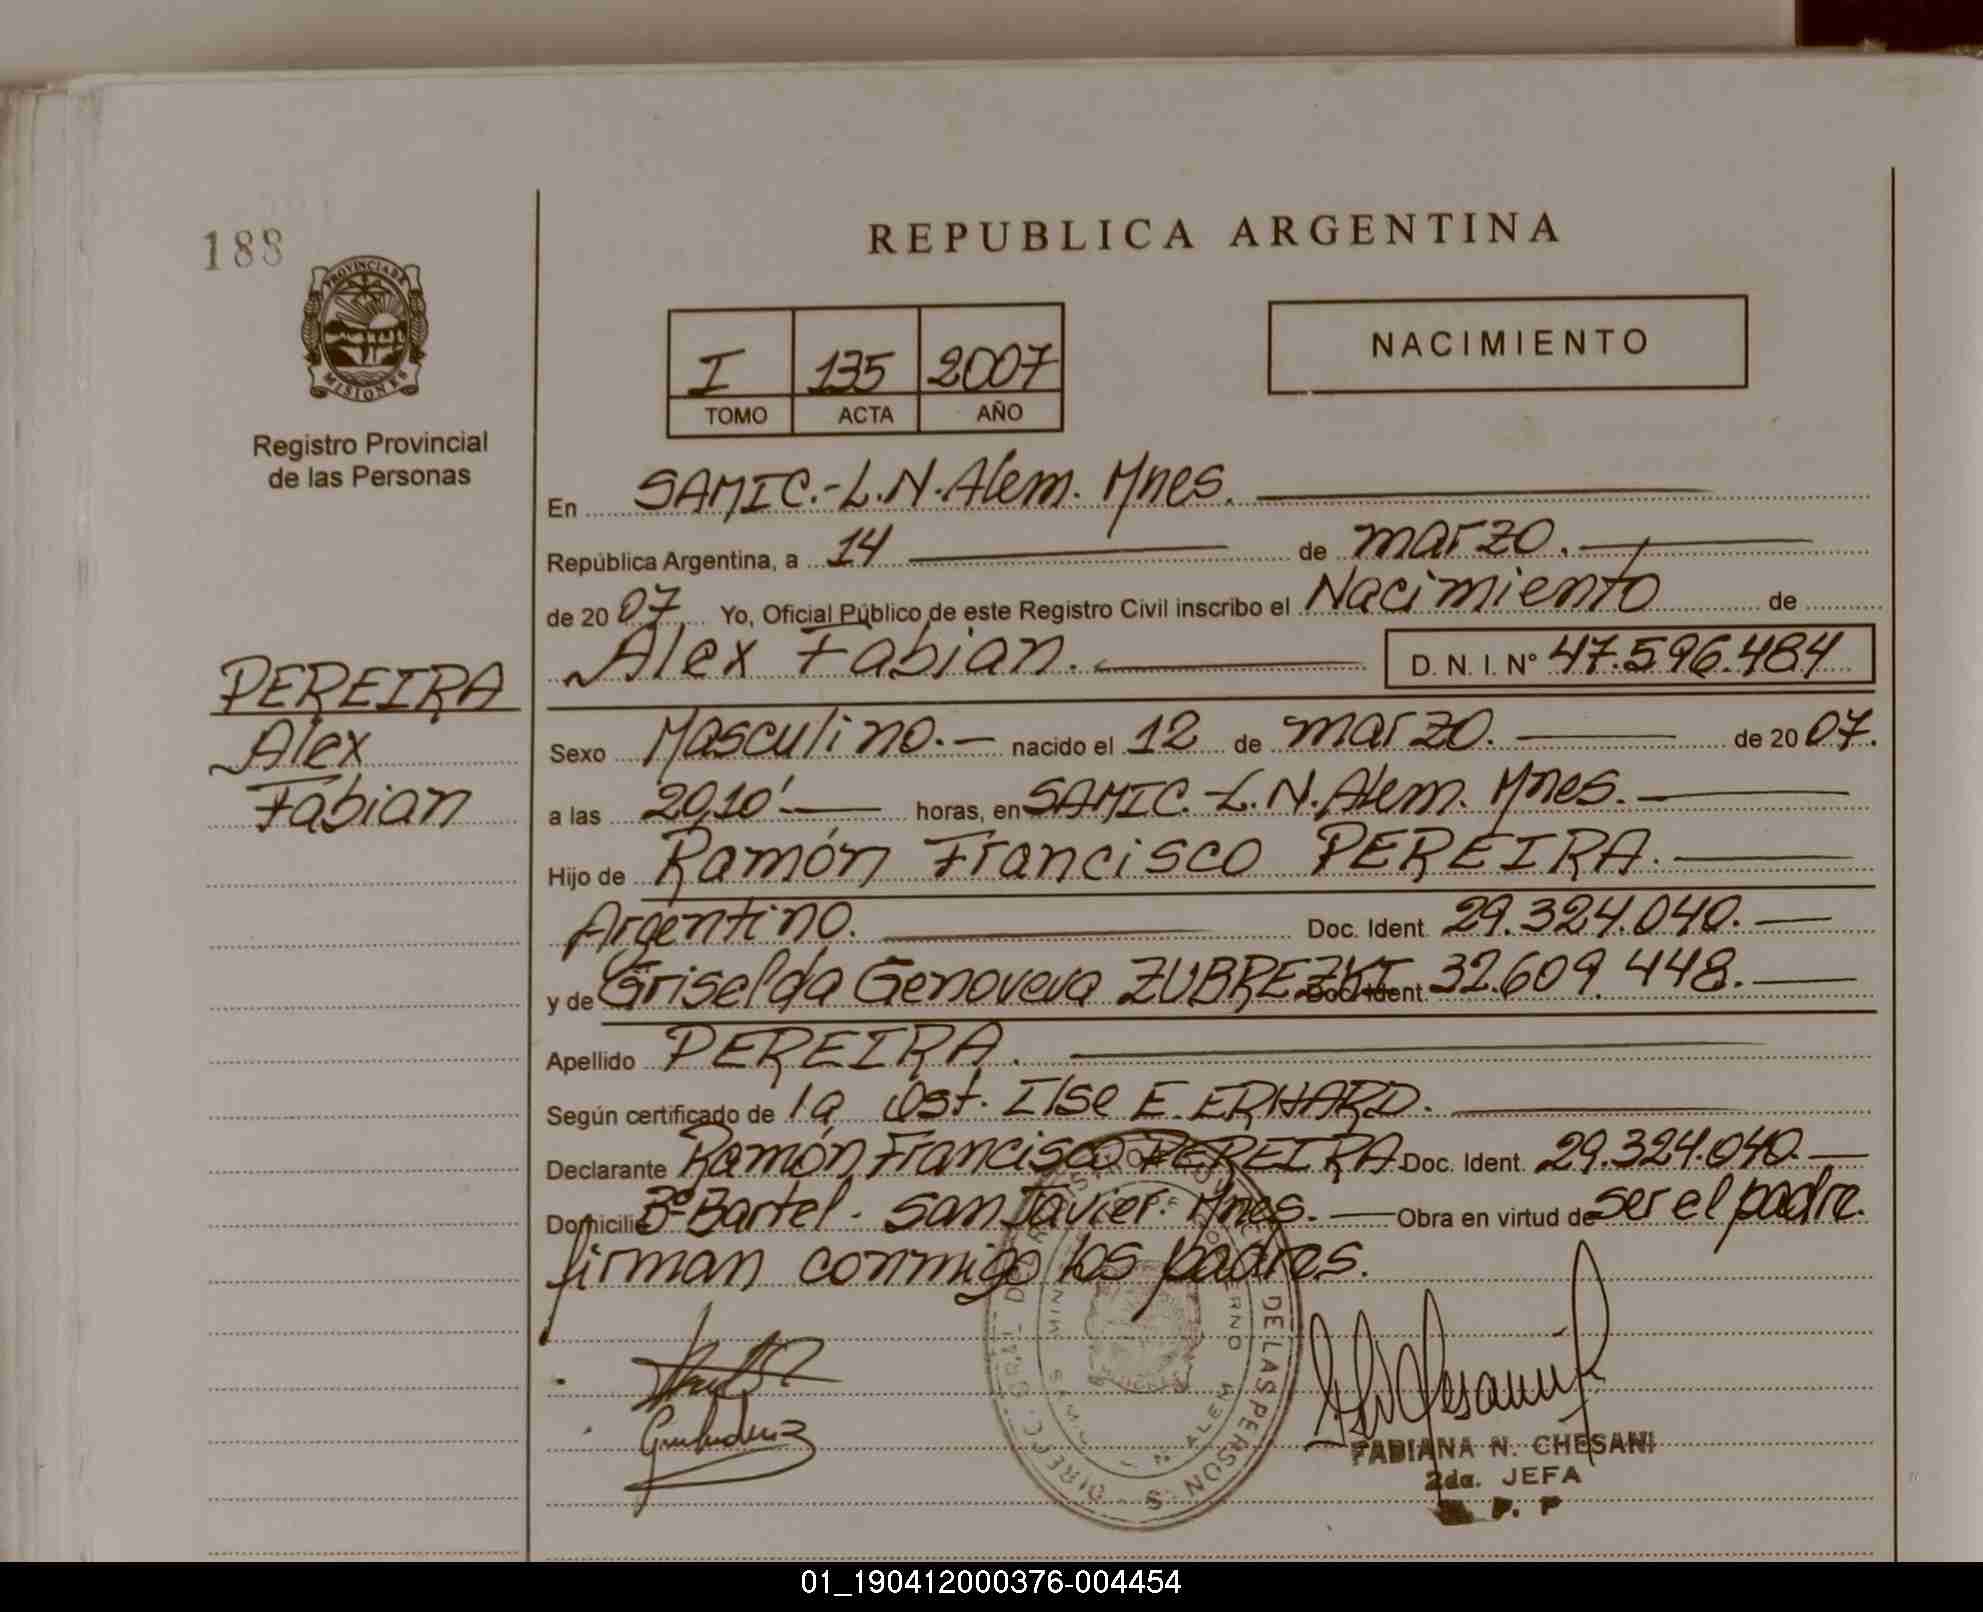 188
PROVINCIA DE
MISIONES
Registro Provincial
de las Personas
REPUBLICA ARGENTINA
I 135 2007
TOMO ACTA AÑO
NACIMIENTO
En SAMIC.-L.N.Alem. Mnes.
República Argentina, a 14 de marzo.
de 2007 Yo, Oficial Público de este Registro Civil inscribo el Nacimiento de
Alex Fabian. D. N. I. N° 47.596.484
PEREIRA
Alex
Fabian
Sexo Masculino.- nacido el 12 de marzo. de 2007.
a las 20,10' horas, en SAMIC.-L.N.Alem. Mnes.
Hijo de Ramón Francisco PEREIRA.
Argentino. Doc. Ident. 29.324.040.
y de Griselda Genoveva ZUBREZKI Doc. Ident. 32.609.448.
Apellido PEREIRA.
Según certificado de la Ost. Ilse E. ERHARD.
Declarante Ramón Francisco PEREIRA Doc. Ident. 29.324.040.
Domicilio B° Bartel. San Javier. Mnes. Obra en virtud de ser el padre.
firman conmigo los padres.
DE LAS PERSONAS
FABIANA N. CHESANI
2da. JEFA
01_190412000376-004454